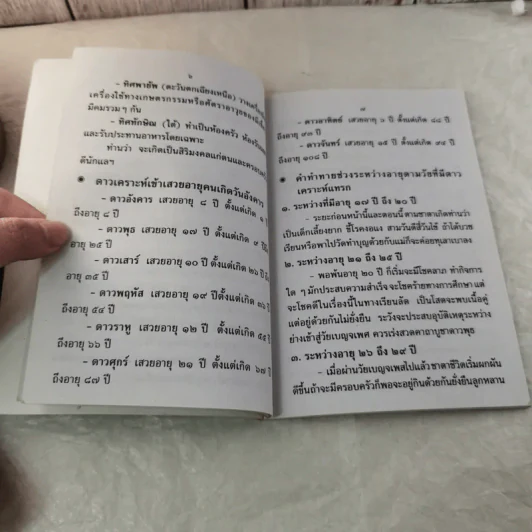 ๖
- ทิศพายัพ (ตะวันตกเฉียงเหนือ) วางเครื่อง
เครื่องใช้ทางเกษตรกรรมหรือศัตราอาวุธของมี
มีคมรวม ๆ กัน
- ทิศทักษิณ (ใต้) ทำเป็นห้องครัว
และรับประทานอาหารโดยเฉพาะ
ท่านว่า จะเกิดเป็นสิริมงคลแก่ตนและครอบครัว
ดีนักแลฯ
ดาวเคราะห์เข้าเสวยอายุคนเกิดวันอังคาร
- ดาวอังคาร เสวยอายุ ๘ ปี ตั้งแต่เกิด ๑
ถึงอายุ ๘ ปี
- ดาวพุธ เสวยอายุ ๑๗ ปี ตั้งแต่เกิด ๙ ปี
อายุ ๒๕ ปี
- ดาวเสาร์ เสวยอายุ ๑๐ ปี ตั้งแต่เกิด ๒๖ ปี
อายุ ๓๕ ปี
- ดาวพฤหัส เสวยอายุ ๑๙ ปีตั้งแต่เกิด ๓๖
ถึงอายุ ๕๔ ปี
- ดาวราหู เสวยอายุ ๑๒ ปี ตั้งแต่เกิด ๕๕
ถึงอายุ ๖๖ ปี
- ดาวศุกร์ เสวยอายุ ๒๑ ปี ตั้งแต่เกิด ๖๗ ปี
ถึงอายุ ๘๗ ปี
๗
- ดาวอาทิตย์ เสวยอายุ ๖ ปี ตั้งแต่เกิด ๘๘ ปี
ถึงอายุ ๙๓ ปี
- ดาวจันทร์ เสวยอายุ ๑๕ ปี ตั้งแต่เกิด ๙๔ ปี
ถึงอายุ ๑๐๘ ปี
คำทำทายช่วงระหว่างอายุตามวัยที่มีดาว
เคราะห์แทรก
๑. ระหว่างที่มีอายุ ๑๗ ปี ถึง ๒๐ ปี
- ระยะก่อนหน้านี้และตอนนี้ ตามชะตาเกิดท่านว่า
เป็นเด็กเลี้ยงยาก ขี้โรคงอแง สามวันดีสี่วันไข้ ถ้าได้บวช
เรียนหรือพาไปวัดทำบุญด้วยกับแม่ก็จะค่อยทุเลาเบาลง
๒. ระหว่างอายุ ๒๑ ถึง ๒๕ ปี
- พอพ้นอายุ ๒๐ ปี ก็เริ่มจะมีโชคลาภ ทำกิจการ
ใด ๆ มักประสบความสำเร็จ จะโชคร้ายทางการศึกษา แต่
จะโชคดีในเรื่องนี้ในทางเรียนลัด เป็นโสดจะพบเนื้อคู่
แต่อยู่ด้วยกันไม่ยั่งยืน ระวังจะประสบอุบัติเหตุระหว่าง
ย่างเข้าสู่วัยเบญจเพศ ควรเร่งสวดคาถาบูชาดาวพุธ
๓. ระหว่างอายุ ๒๖ ถึง ๒๙ ปี
- เมื่อผ่านวัยเบญจเพสไปแล้วชะตาชีวิตเริ่มผกผัน
ดีขึ้นถ้าจะมีครอบครัวก็พอจะอยู่กินด้วยกันยั่งยืนลูกหลาน